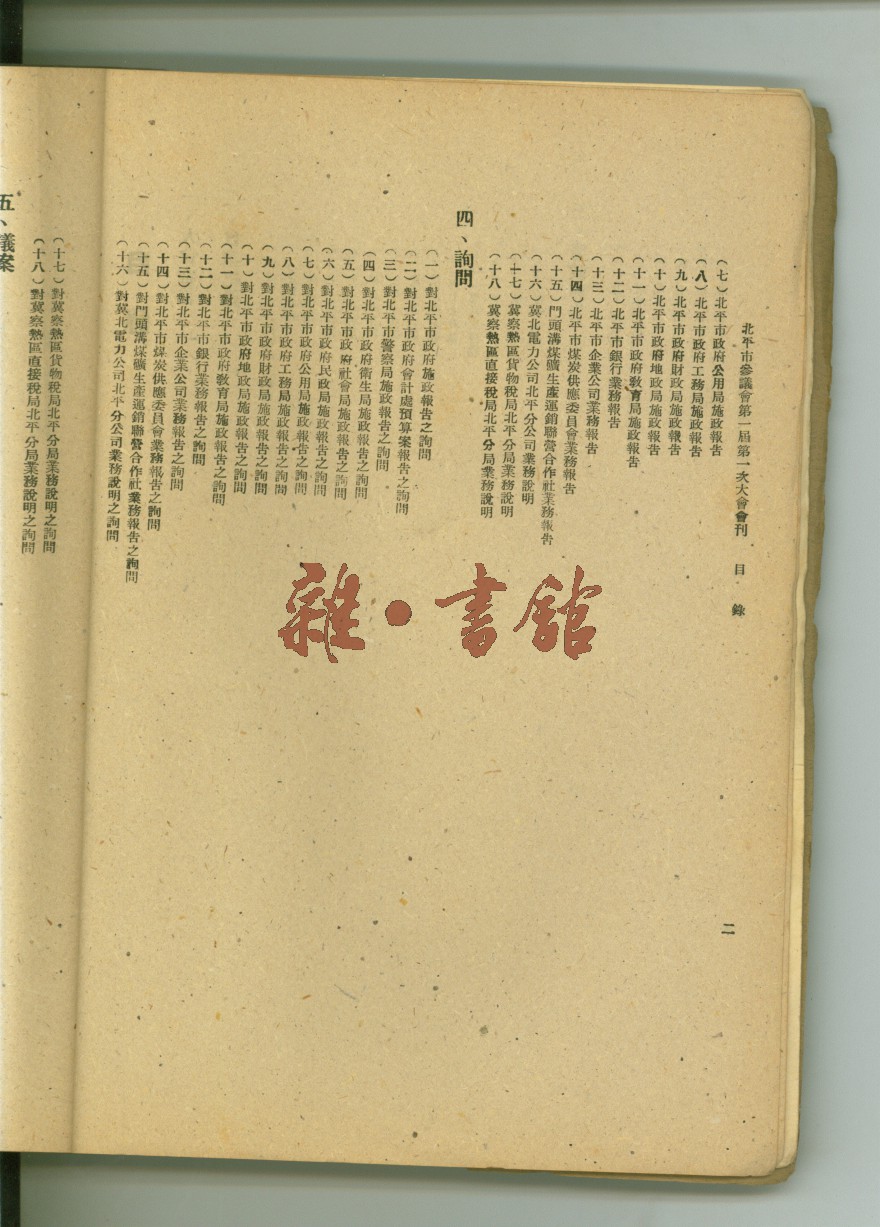 北平市參議會第一屆第一次大會會刊 目錄
二
（七）北平市政府公用局施政報告
（八）北平市政府工務局施政報告
（九）北平市政府財政局施政報告
（十）北平市政府地政局施政報告
（十一）北平市政府教育局施政報告
（十二）北平市銀行業務報告
（十三）北平市企業公司業務報告
（十四）北平市煤炭供應委員會業務報告
（十五）門頭溝煤礦生產運銷聯營合作社業務報告
（十六）冀北電力公司北平分公司業務說明
（十七）冀察熱區貨物稅局北平分局業務說明
（十八）冀察熱區直接稅局北平分局業務說明
四、詢問
（一）對北平市政府施政報告之詢問
（二）對北平市政府會計處預算案報告之詢問
（三）對北平市警察局施政報告之詢問
（四）對北平市政府衛生局施政報告之詢問
（五）對北平市政府社會局施政報告之詢問
（六）對北平市政府民政局施政報告之詢問
（七）對北平市政府公用局施政報告之詢問
（八）對北平市政府工務局施政報告之詢問
（九）對北平市政府財政局施政報告之詢問
（十）對北平市政府地政局施政報告之詢問
（十一）對北平市政府教育局施政報告之詢問
（十二）對北平市銀行業務報告之詢問
（十三）對北平市企業公司業務報告之詢問
（十四）對北平市煤炭供應委員會業務報告之詢問
（十五）對門頭溝煤礦生產運銷聯營合作社業務報告之詢問
（十六）對冀北電力公司北平分公司業務說明之詢問
（十七）對冀察熱區貨物稅局北平分局業務說明之詢問
（十八）對冀察熱區直接稅局北平分局業務說明之詢問
五、議案
雜·書館